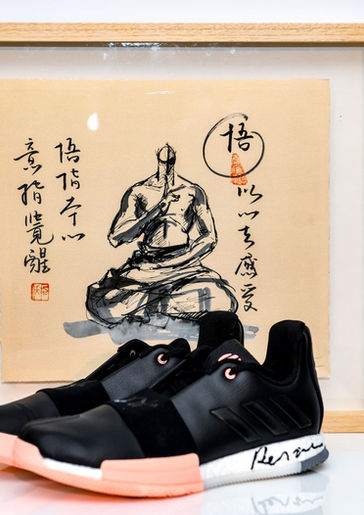 悟
以心去感受
悟指本心
意指覺醒